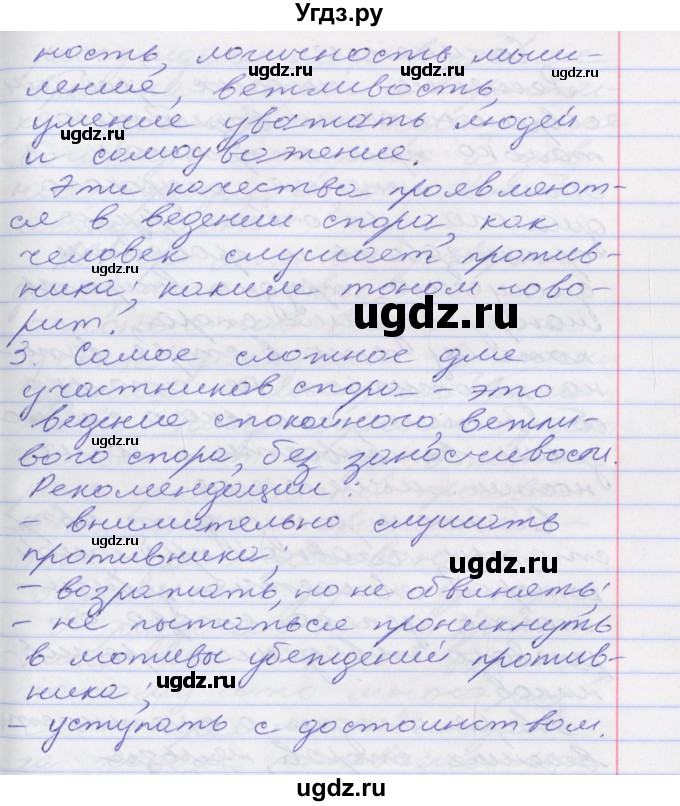 Угдз.ру
ность, логичность мыш-
ления, вежливость,
умение уважать людей
и самоуважение.
Эти качества проявляют-
ся в ведении спора, как
человек слушает против-
ника, каким тоном гово-
рит.
3. Самое сложное для
участников спора – это
ведение спокойного, вежли-
вого спора, без заносчивости.
Рекомендации:
– внимательно слушать
противника;
– возражать, но не обвинять;
– не пытаться проникнуть
в мотивы убеждений против-
ника;
– уступать с достоинством.
ugdz.ru
ugdz.ru
ugdz.ru
ugdz.ru
ugdz.ru
ugdz.ru
ugdz.ru
ugdz.ru
ugdz.ru
ugdz.ru
ugdz.ru
ugdz.ru
ugdz.ru